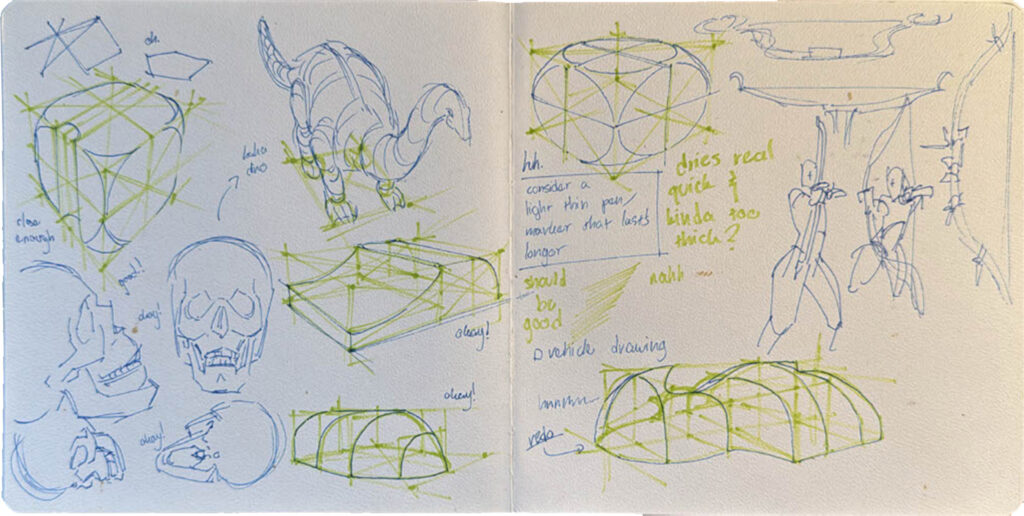 oh.
haha
dino
close
enough
good!
okay!
okay!
okay!
okay!
huh.
consider a
light thin pen/
marker that lasts
longer
dries real
quick &
kinda too
thick?
should
be
good
nahh
vehicle drawing
redo